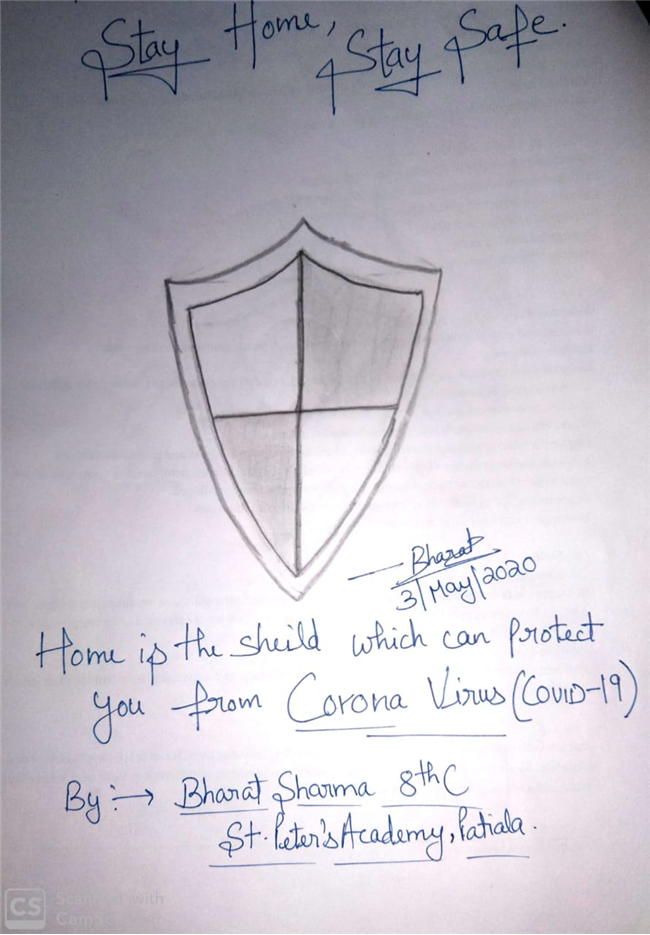 Stay Home, Stay Safe.
Bharat
3/May/2020
Home is the sheild which can Protect
you from Corona Virus (COVID-19)
By :→ Bharat Sharma 8th C
St. Peter's Academy, Patiala.
CS Scanned with
CamSc